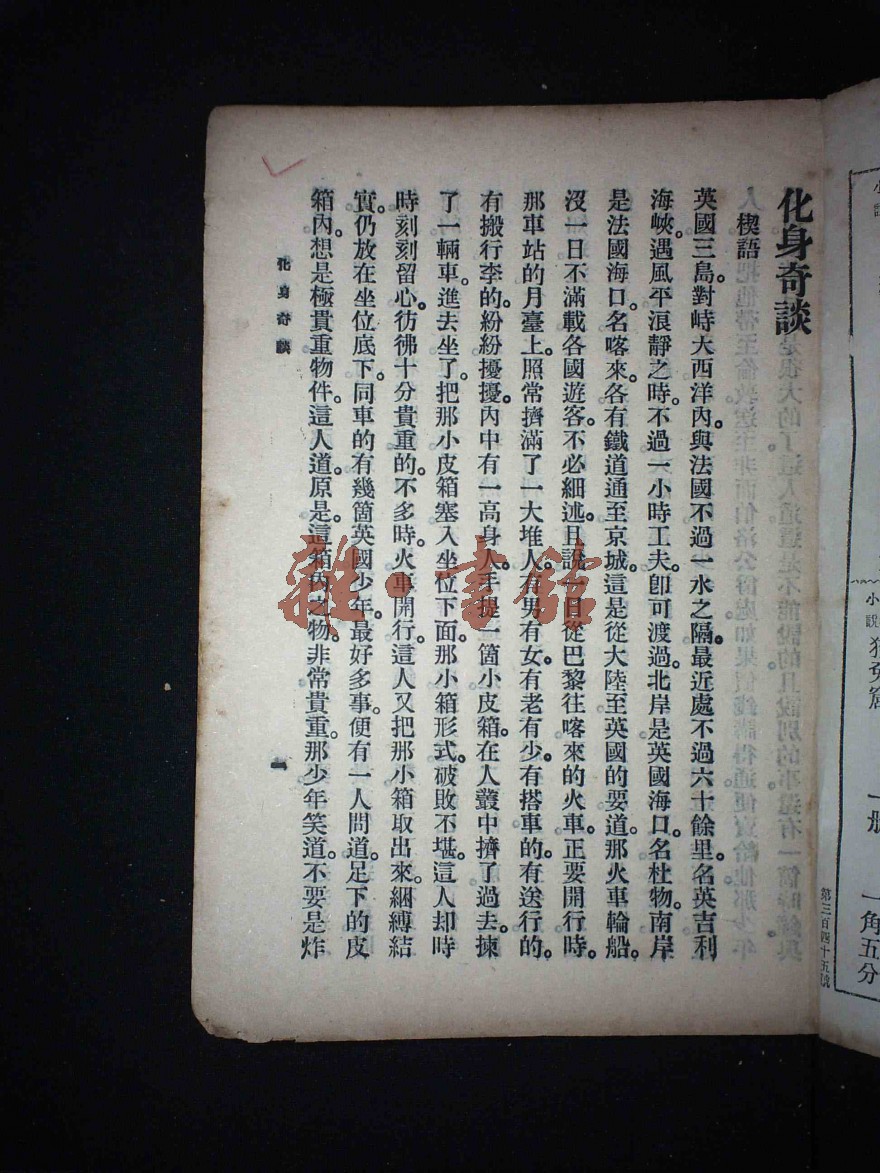 化身奇談
楔語
英國三島。對峙大西洋內。與法國不過一水之隔。最近處不過六十餘里。名英吉利
海峽。遇風平浪靜之時。不過一小時工夫。卽可渡過。北岸是英國海口。名杜物。南岸
是法國海口。名喀來。各有鐵道通至京城。這是從大陸至英國的要道。那火車輪船。
沒一日不滿載各國遊客。不必細述。且說一日從巴黎往喀來的火車。正要開行時。
那車站的月臺上。照常擠滿了一大堆人。有男有女。有老有少。有搭車的。有送行的。
有搬行李的。紛紛擾擾。內中有一高身人。手提一箇小皮箱。在人叢中擠了過去。揀
了一輛車。進去坐了。把那小皮箱塞入坐位下面。那小箱形式。破敗不堪。這人却時
時刻刻留心。彷彿十分貴重的。不多時。火車開行。這人又把那小箱取出來。綑縛結
實。仍放在坐位底下。同車的有幾箇英國少年。最好多事。便有一人問道。足下的皮
箱內。想是極貴重物件。這人道。原是。這箱內之物。非常貴重。那少年笑道。不要是炸
化身奇談
一
小說
一角五分
第三百四十五號
雜·書館